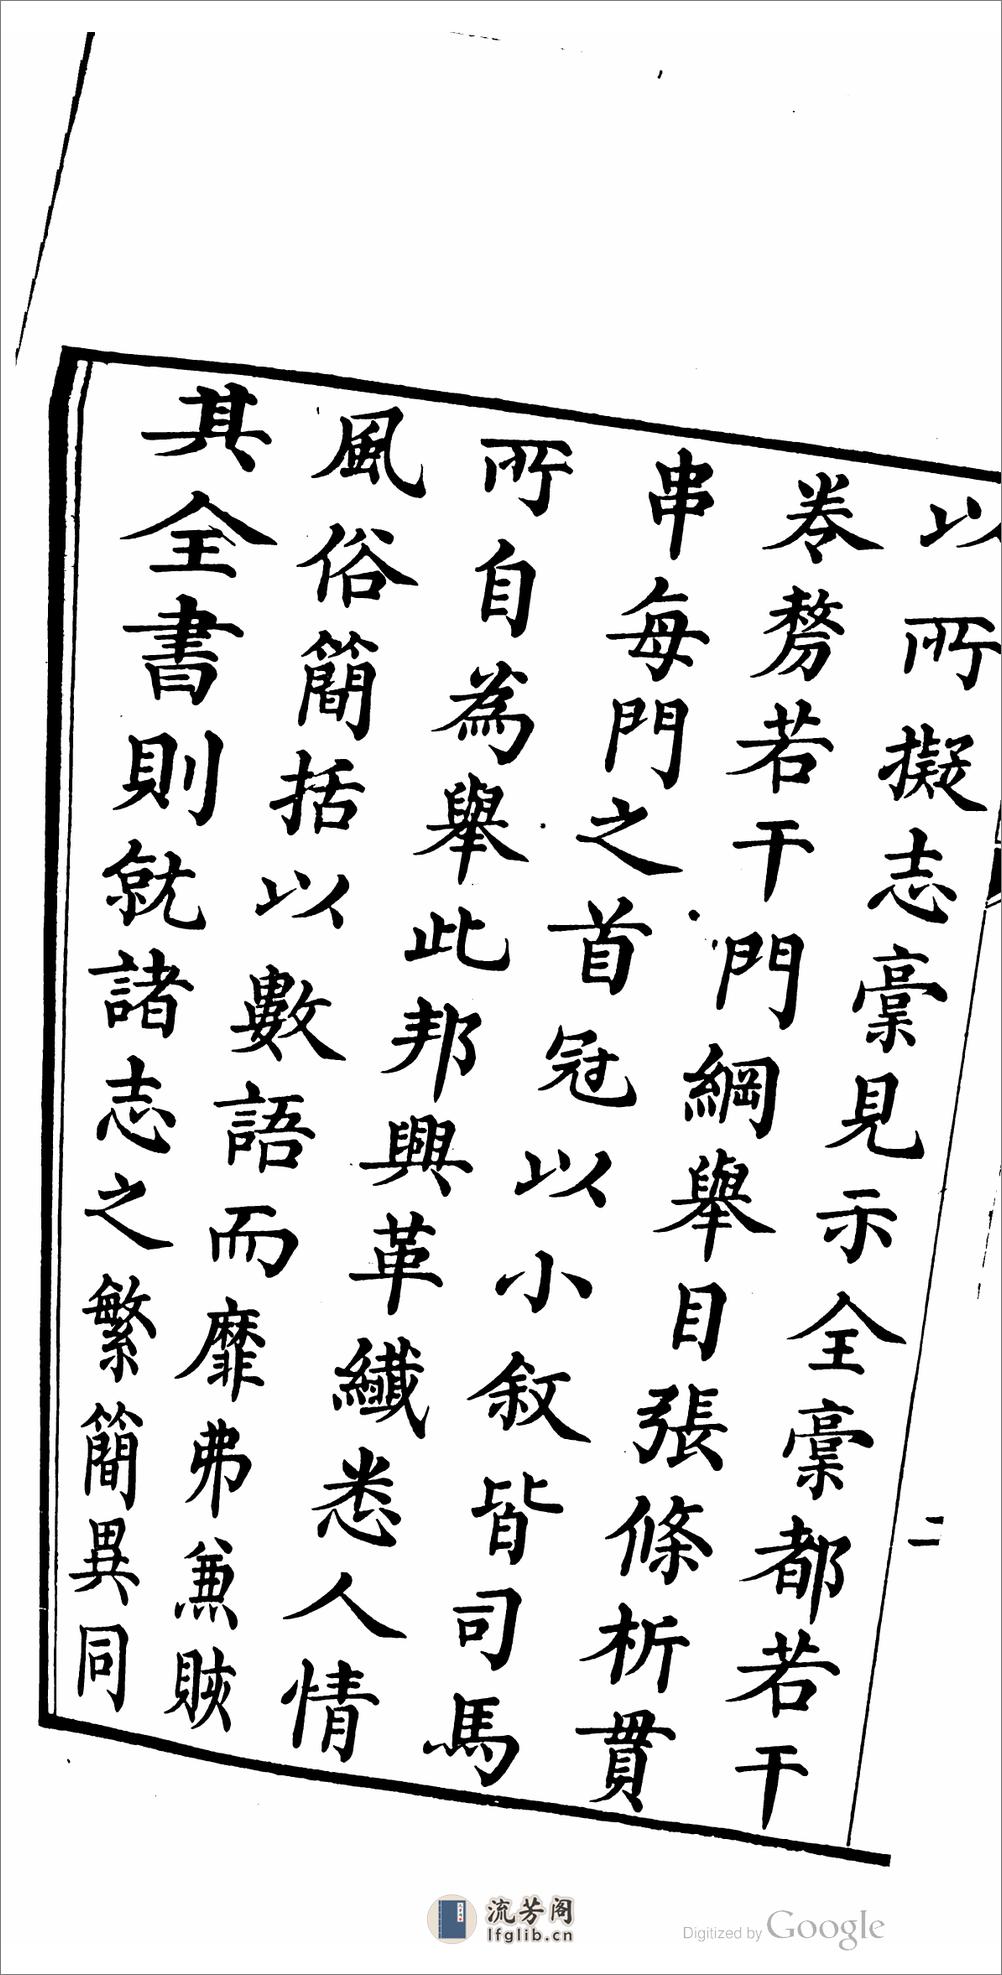 以所擬志稾見示全稾都若干
卷剺若干門綱舉目張條析貫
串每門之首冠以小叙皆司馬
所自為舉此邦興革纖悉人情
風俗簡括以數語而靡弗兼賅
其全書則就諸志之繁簡異同
二
流芳阁
lfglib.cn
Digitized by Google